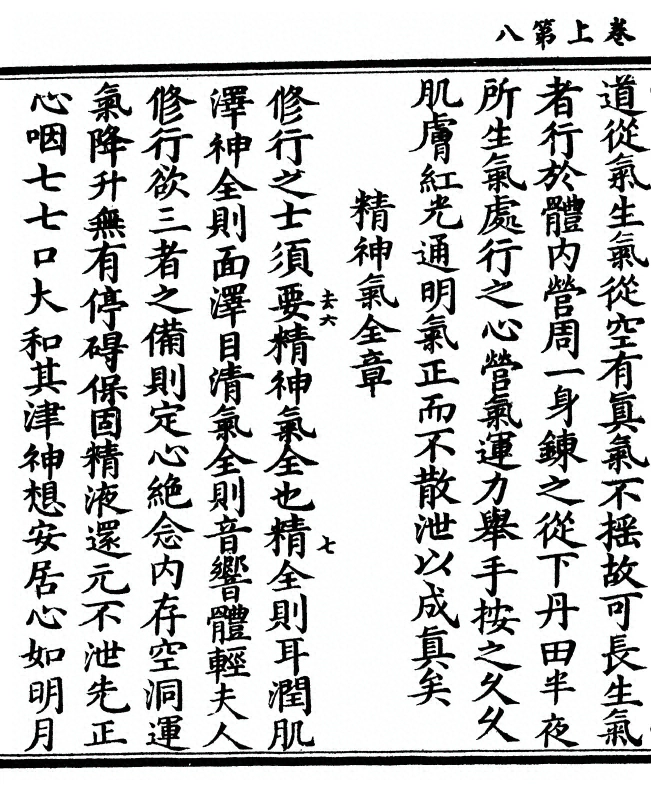 卷上第八
道從氣生氣從空有眞氣不搖故可長生氣
者行於體內營周一身鍊之從下丹田半夜
所生氣處行之心營氣運力舉手按之久久
肌膚紅光通明氣正而不散泄以成眞矣
精神氣全章
修行之士須要精神氣全也精全則耳潤肌
去六
七
澤神全則面澤目清氣全則音響體輕夫人
修行欲三者之備則定心絶念內存空洞運
氣降升無有停碍保固精液還元不泄先正
心咽七七口大和其津神想安居心如明月